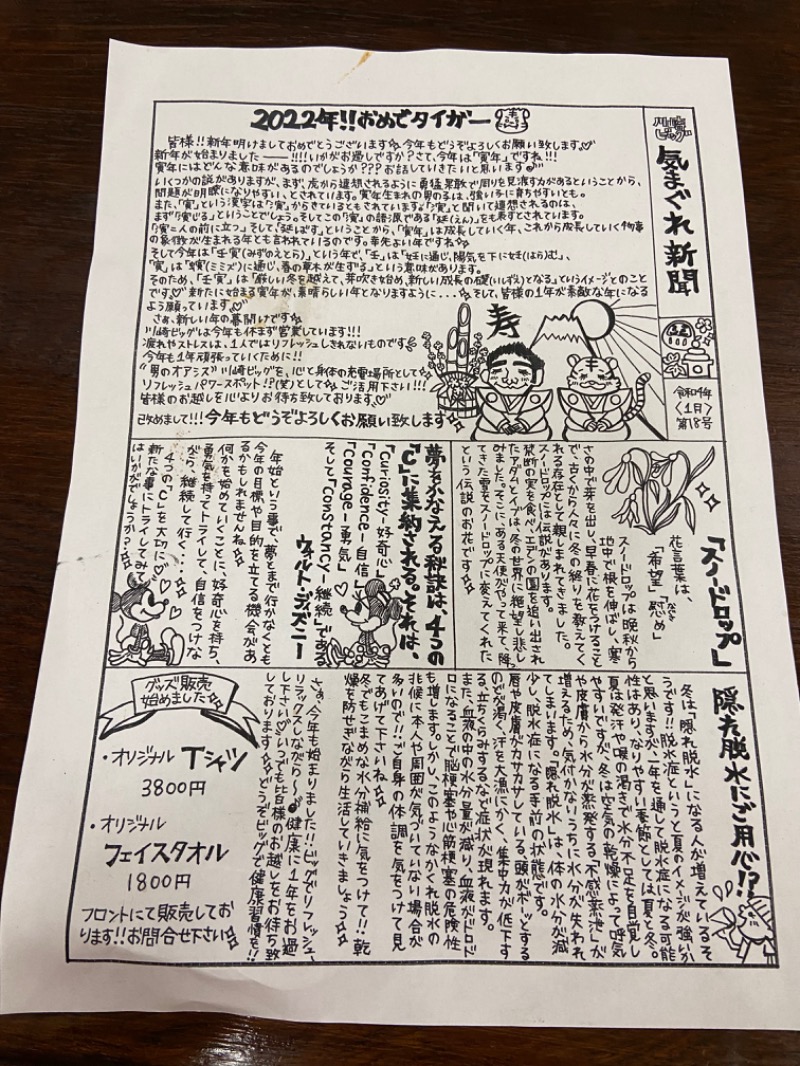 2022年!!おめでタイガー
川崎ビッグ
気まぐれ新聞
令和4年
〈1月〉
第18号
皆様!!新年明けましておめでとうございます。今年もどうぞよろしくお願い致します♡
新年が始まりました――!!!!いかがお過しですか?さて、今年は「寅年」ですね!!!
寅年にはどんな意味があるのでしょうか???お話していきたいと思います
いくつかの説がありますが、まず、虎から連想されるように勇猛果敢で周りを見渡す力があるということから、
問題が明瞭になりやすい、とされています。寅年生まれの男の子は、強い子に育ちやすいとも。
また、「寅」という漢字は「演」からきているともされています。「演」と聞いて連想されるのは、
まず「演じる」ということでしょう。そしてこの「演」の語源である「延(えん)」をも表すとされています。
「演=人の前に立つ」そして、「延ばす」ということから、「寅年」は成長していく年、これから成長していく物事
の象徴が生まれる年とも言われているのです。幸先よい年ですね
そして今年は「壬寅(みずのえとら)」という年で、「壬」は「妊に通じ、陽気を下に妊(はらむ)」、
「寅」は「螾(ミミズ)に通じ、春の草木が生ずる」という意味があります。
そのため、「壬寅」は「厳しい冬を越えて、芽吹き始め、新しい成長の礎(いしずえ)となる」というイメージとのこと
です♡新たに始まる寅年が、素晴らしい年となりますように...そして、皆様の1年が素敵な年になる
よう願っています♡
さぁ、新しい年の幕開けです
川崎ビッグは今年も休まず営業しています!!!
疲れやストレスは、1人ではリフレッシュしきれないものです
今年も1年頑張っていくために!!
"男のオアシス"川崎ビッグを、心と身体の充電場所として
リフレッシュパワースポット!?(笑)としてご活用下さい!!!
皆様のお越しを心よりお待ち致しております♡
改めまして!!!今年もどうぞよろしくお願い致します
寿
「スノードロップ」
花言葉は、
「希望」「慰め」
なぐさ
スノードロップは晩秋から
地中で根を伸ばし、寒
さの中で芽を出し、早春に花をつけること
で、古くから人々に冬の終りを教えてく
れる存在として親しまれてきました。
スノードロップには伝説があります。
禁断の実を食べ、エデンの園を追い出され
たアダムとイブは、冬の世界に絶望し悲し
みました。そこに、ある天使がやって来て、降っ
てきた雪をスノードロップに変えてくれた
という伝説のお花です
夢をかなえる秘訣は、4つの
「C」に集約される。それは、
「Curiosity-好奇心」
「Confidence-自信」
「Courage-勇気」
そして「Constancy-継続」である
ウォルト・ディズニー
年始という事で、夢とまで行かなくとも
今年の目標や目的を立てる機会があ
るかもしれませんね
何かを始めていくことに、好奇心を持ち、
勇気を持ってトライして、自信をつけな
がら、継続して行く...
4つの"C"を大切に♡
新たな事にトライしてみて
はいかがでしょうか?
隠れ脱水にご用心!?
冬は「隠れ脱水」になる人が増えているそ
うです!!脱水症というと夏のイメージが強いか
と思いますが、一年を通して脱水症になる可能
性はあり、なりやすい季節としては夏と冬。
夏は発汗や喉の渇きで水分不足を自覚し
やすいですが、冬は空気の乾燥によって呼気
や皮膚から水分が蒸発する「不感蒸泄」が
増えるため、気付かないうちに水分が失われ
てしまいます。「隠れ脱水」は、体の水分が減
少し、脱水症になる手前の状態です。
唇や皮膚がカサカサしている、頭がボーッとする
のどが渇く、汗を大量にかく、集中力が低下す
る、立ちくらみするなど症状が現れます。
また、血液の中の水分量が減り、血液がドロド
ロになることで脳梗塞や心筋梗塞の危険性
も増します。しかし、このようなかくれ脱水の
兆候に本人や周囲が気づいていない場合が
多いので!!ご自身の体調を気をつけて見
てあげて下さいね
冬でもこまめな水分補給に気をつけて!!乾
燥を防せぎながら生活していきましょう
さぁ、今年も始まりました!!ビッグでリフレッシュ、
リラックスしながら~健康に1年をお過し
下さい♡いつでも皆様のお越しをお待ち致
しております どうぞビッグで健康習慣を!!
グッズ販売
始めました
・オリジナル Tシャツ
3800円
・オリジナル
フェイスタオル
1800円
フロントにて販売してお
ります!!お問合せ下さい